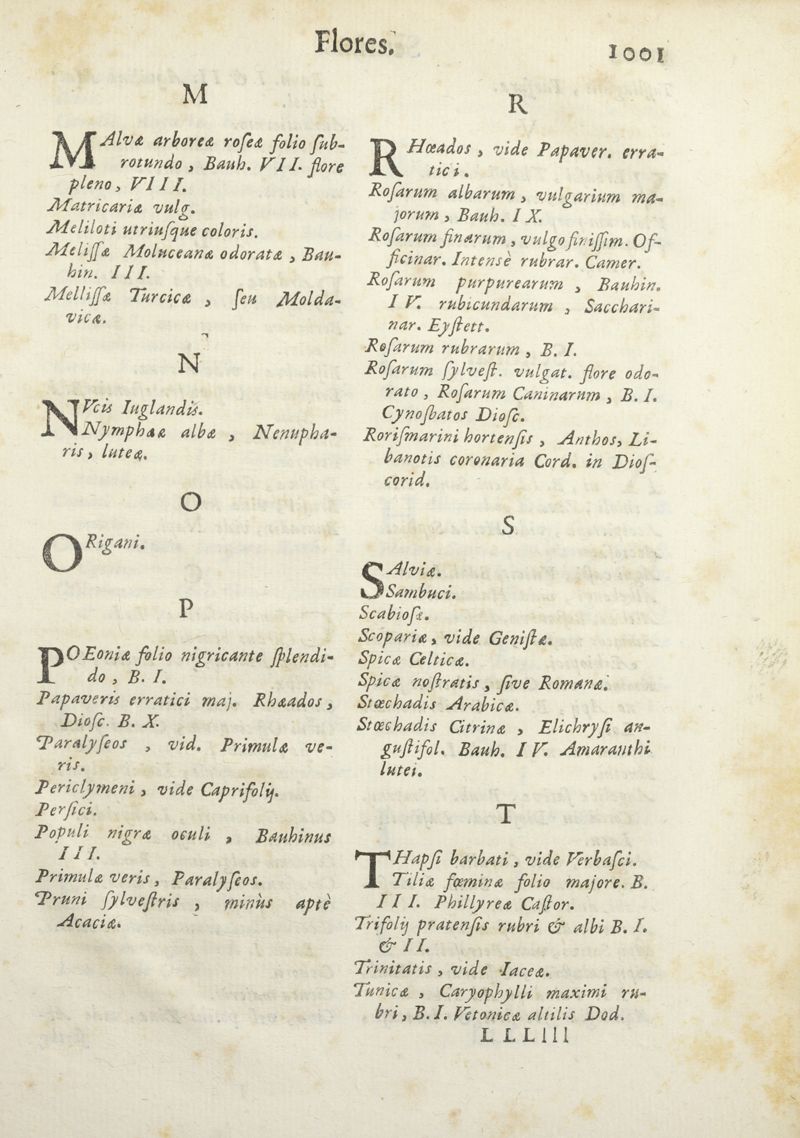 Flores. 1001
M
MAlvæ arboreæ roſeæ folio ſub-
rotundo, Bauh. VII. flore
pleno, VIII.
Matricariæ vulg.
Meliloti utriuſque coloris.
Meliſſæ Moluceanæ odoratæ, Bau-
hin. III.
Melliſſæ Turcicæ, ſeu Molda-
vicæ.
N
NVcis Iuglandis.
Nymphææ albæ, Nenupha-
ris, luteæ.
O
ORigani.
P
POEoniæ folio nigricante ſplendi-
do, B. I.
Papaveris erratici maj. Rhæados,
Dioſc. B. X.
Paralyſeos, vid. Primulæ ve-
ris.
Periclymeni, vide Caprifolij.
Perſici.
Populi nigræ oculi, Bauhinus
III.
Primulæ veris, Paralyſeos.
Pruni ſylveſtris, minùs aptè
Acaciæ.
R
RHœados, vide Papaver. erra-
tici.
Roſarum albarum, vulgarium ma-
jorum, Bauh. IX.
Roſarum finarum, vulgo finiſſim. Of-
ficinar. Intensè rubrar. Camer.
Roſarum purpurearum, Bauhin.
IV. rubicundarum, Sacchari-
nar. Eyſtett.
Roſarum rubrarum, B. I.
Roſarum ſylveſt. vulgat. flore odo-
rato, Roſarum Caninarum, B. I.
Cynoſbatos Dioſc.
Roriſmarini hortenſis, Anthos, Li-
banotis coronaria Cord. in Dioſ-
corid.
S
SAlviæ.
Sambuci.
Scabioſæ.
Scopariæ, vide Geniſtæ.
Spicæ Celticæ.
Spicæ noſtratis, ſive Romanæ.
Stœchadis Arabicæ.
Stœchadis Citrinæ, Elichryſi an-
guſtifol. Bauh. IV. Amaranthi
lutei.
T
THapſi barbati, vide Verbaſci.
Tiliæ fœminæ folio majore. B.
III. Phillyreæ Caſtor.
Trifolij pratenſis rubri & albi B. I.
& II.
Trinitatis, vide Iaceæ.
Tunicæ, Caryophylli maximi ru-
bri, B. I. Vetonicæ altilis Dod.
LLLlll